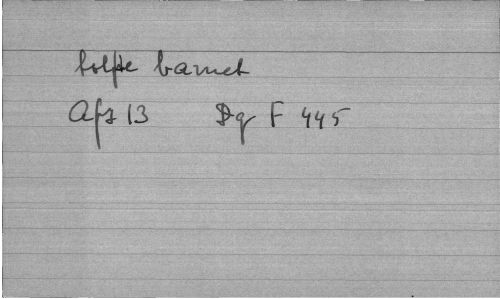 tolfte barnet
Afz 13 Dg F 445